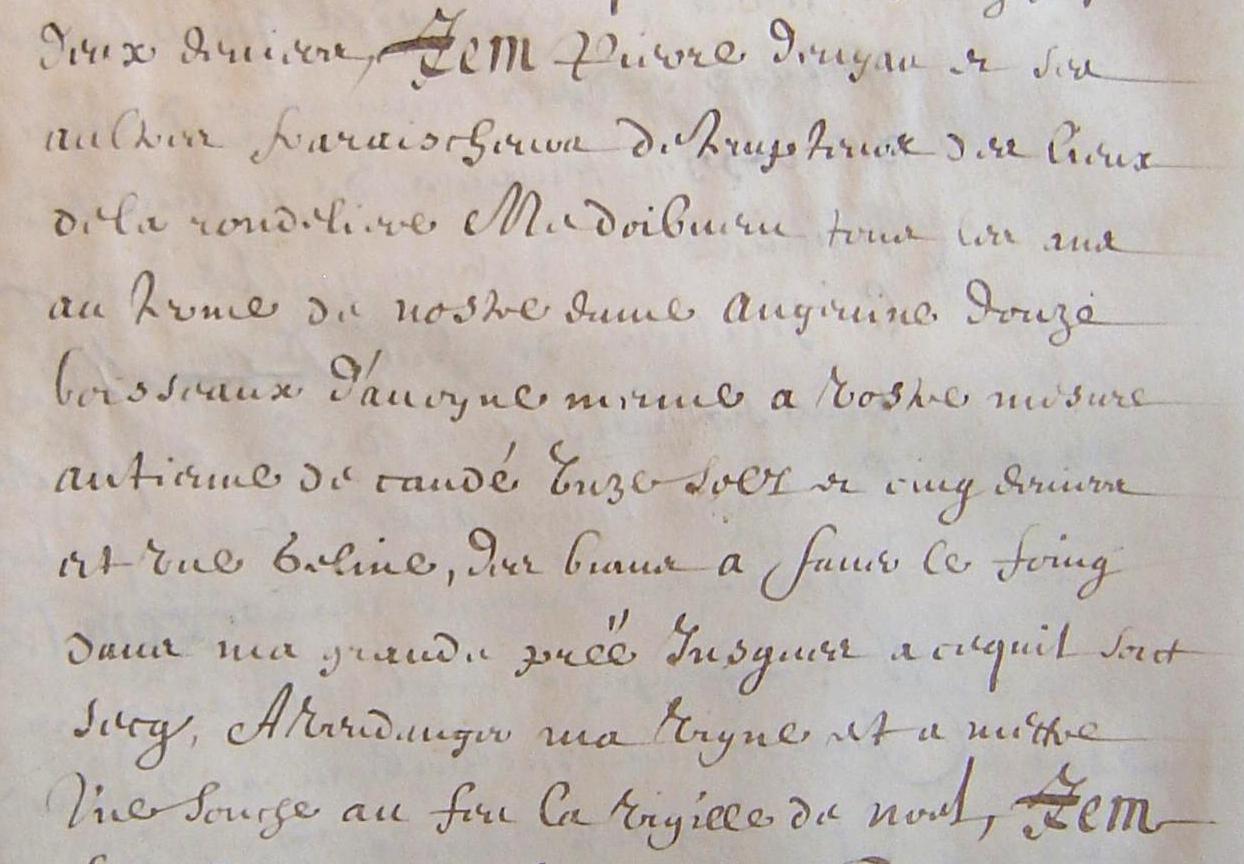 deux deniers, Item Pierre douyau et ses
aultres fraraischeurs detempteurs des lieux
dela rondeliere Me doibvent tous les ans
au terme de nostre dame angevine douze
boisseaux d'avoyne menue a vostre mesure
antienne de candé unze solz et cinq deniers
et une geline, des bians a faner le foing
dans ma grande préé Jusques a cequil soict
secq, A vendanger ma vigne et a mettre
Une souche au feu la vigille de noel, Item